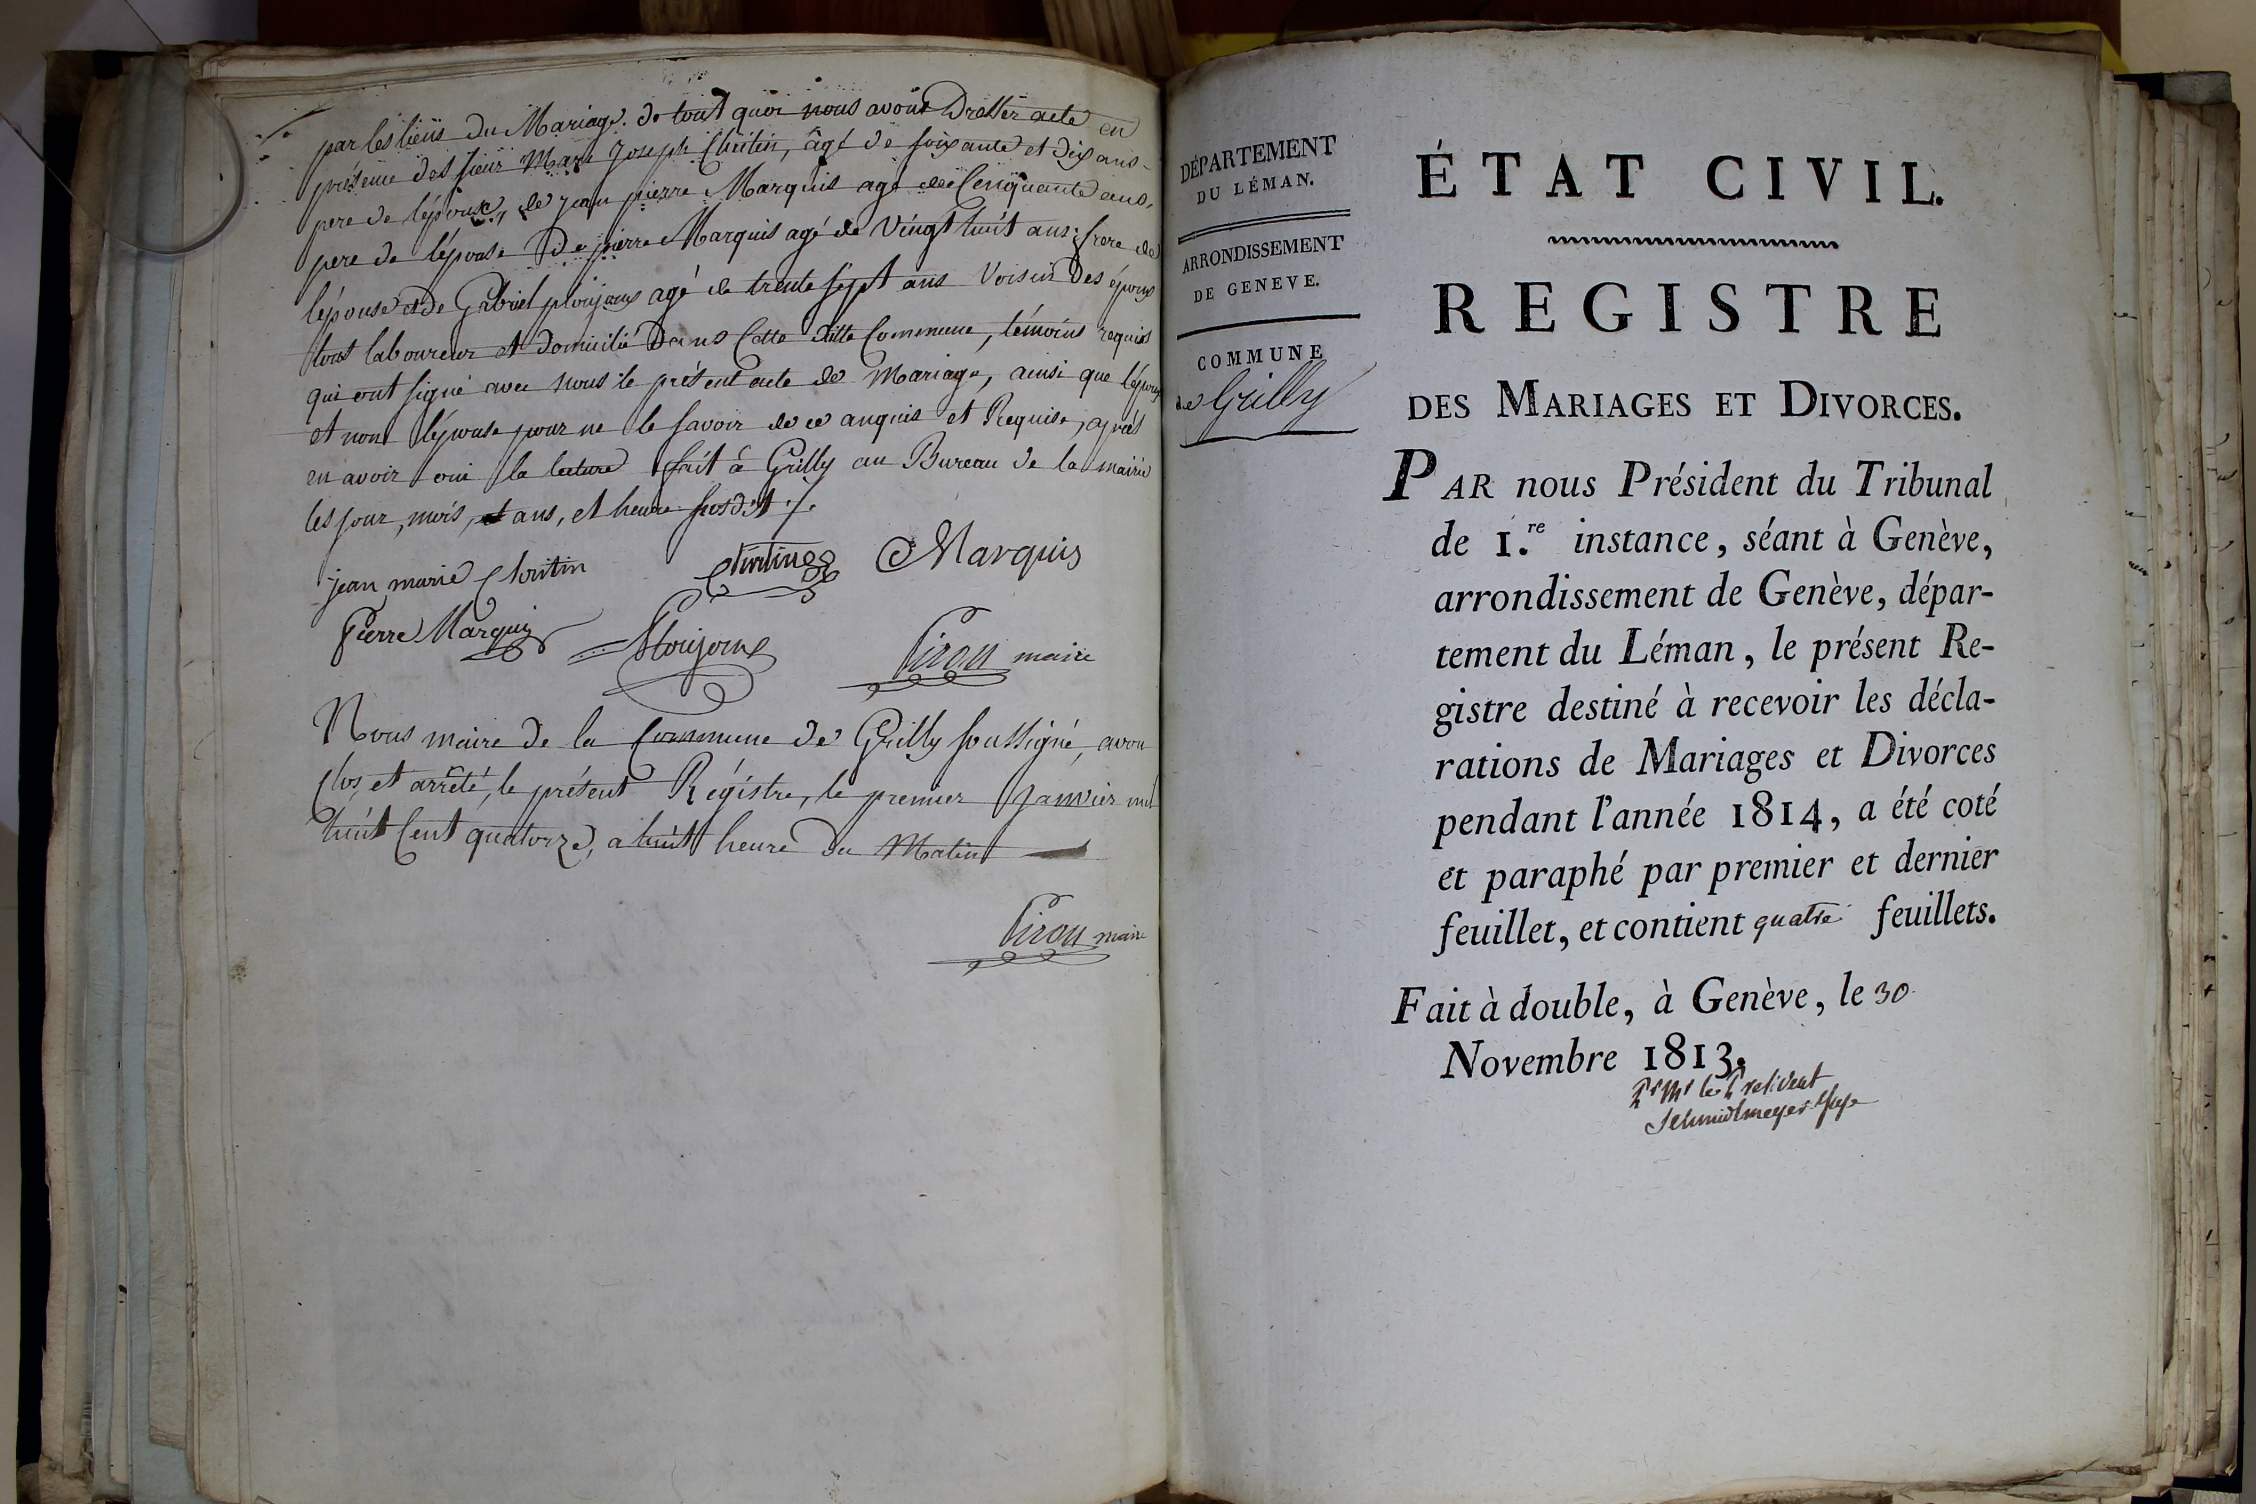 par les liens du Mariage. de tout quoi nous avons Dressér acte en
présence des sieur Marc Joseph Chritin, âgé de soixante et dix ans
pere de l'époux, de jean pierre Marquis agé de Cenquante ans,
pere de l'épouse De pierre Marquis agé de Vingt huit ans, frere de
l'épouse et de Gabriel ploujoux agé de trente sept ans Voisin Des époux
tout laboureur et domicilié Dans Cette ditte Commune, témoins requis
qui ont signé avec nous le présent acte de Mariage, ainsi que l'époux
et non l'épouse pour ne le savoir de ce anquis et Requise, après
en avoir oui la lecture fait à Grilly au Bureau de la mairie
les jour, mois, et ans, et heure susdit ./.
jean marie Chritin
Marquis
Pierre Marquis
Ploujoux
Girou maire
Nous maire de la Commune de Grilly soussigné, avon
Clos, et arrêté, le présent Régistre, le premier Janvier mil
huit Cent quatorze, a huit heure du Matin
Girou maire
DÉPARTEMENT
DU LÉMAN.
ARRONDISSEMENT
DE GENEVE.
COMMUNE
de Grilly
ÉTAT CIVIL.
REGISTRE
DES MARIAGES ET DIVORCES.
PAR nous Président du Tribunal
de 1.re instance, séant à Genève,
arrondissement de Genève, dépar-
tement du Léman, le présent Re-
gistre destiné à recevoir les décla-
rations de Mariages et Divorces
pendant l'année 1814, a été coté
et paraphé par premier et dernier
feuillet, et contient quatre feuillets.
Fait à double, à Genève, le 30
Novembre 1813.
Pr Mr le Président
Schmidtmeyer